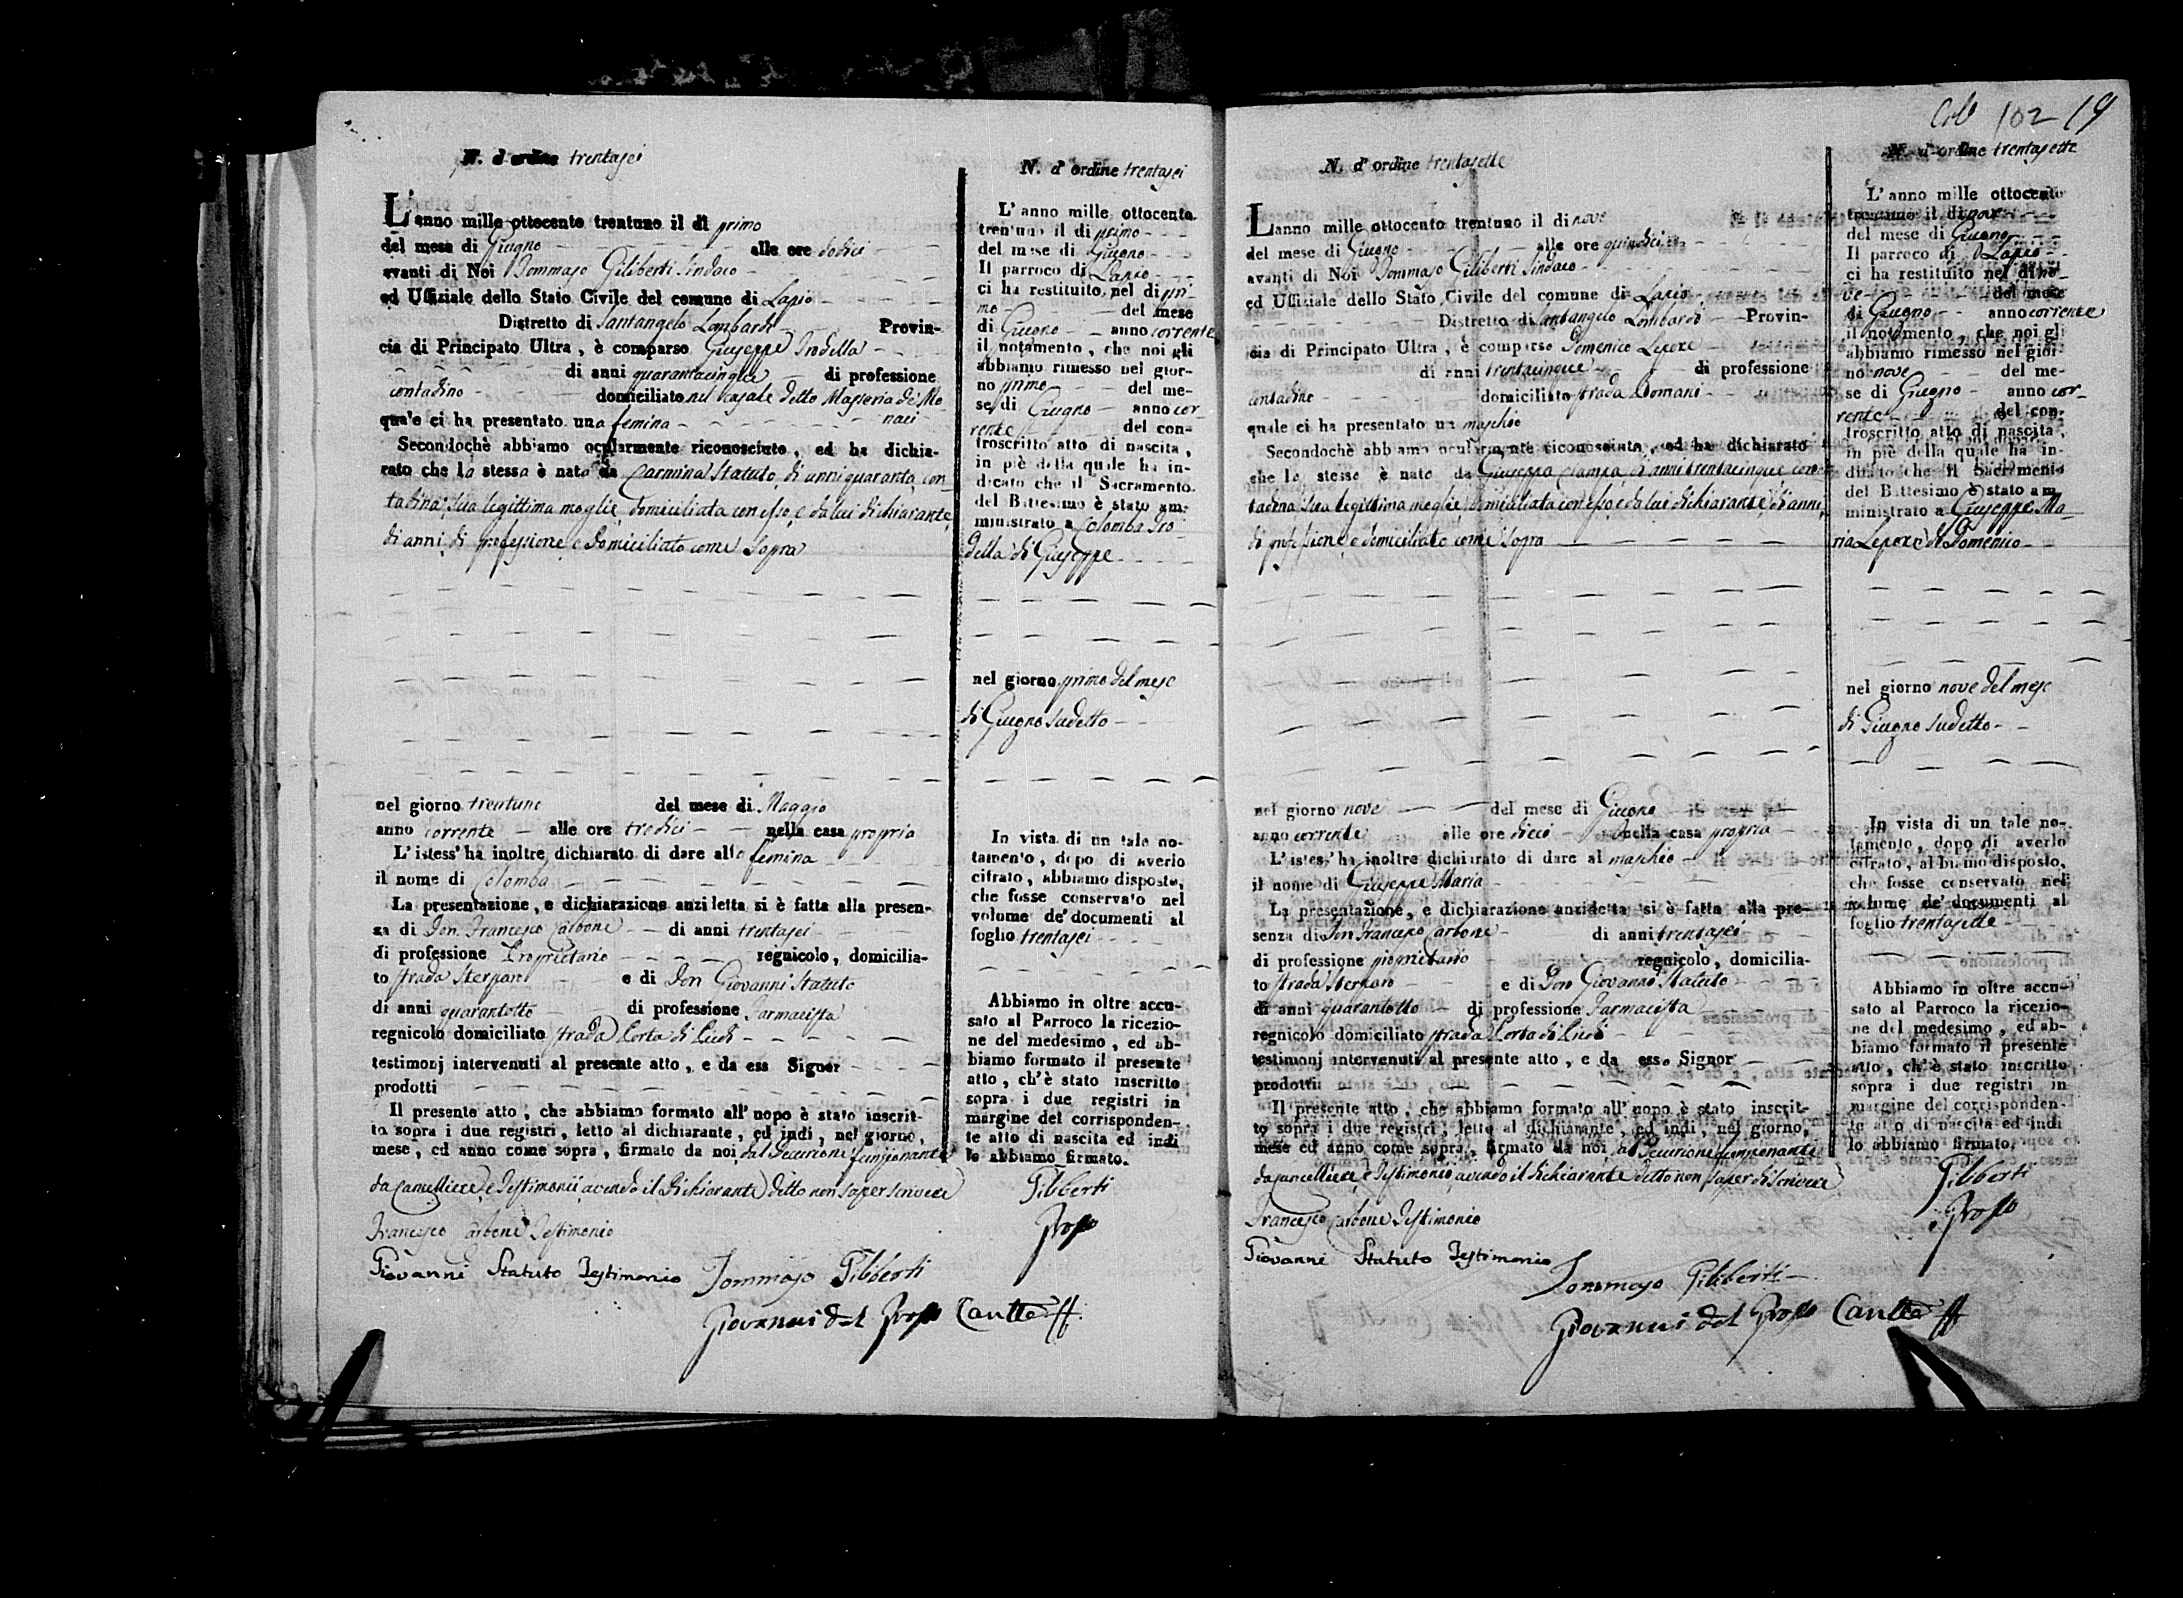 N. d'ordine trentasei
L'anno mille ottocento trentuno il dì primo
del mese di Giugno alle ore dodici
avanti di Noi Tommaso Giliberti Sindaco
ed Uffiziale dello Stato Civile del comune di Lapio
Distretto di Santangelo Lombardi Provin-
cia di Principato Ultra, è comparso Giuseppe Trodella
di anni quarantacinque di professione
contadino domiciliato nel Casale detto Masseria de' Mo-
quale ci ha presentato una femina naci
Secondochè abbiamo ocularmente riconosciuto, ed ha dichia-
rato che la stessa è nata da Carmina Statuto, di anni quaranta, con-
tadina, sua legittima moglie, domiciliata con esso, e da lui dichiarante,
di anni, di professione, e domiciliato come sopra
nel giorno trentuno del mese di Maggio
anno corrente alle ore tredici nella casa propria
L'istess' ha inoltre dichiarato di dare alla femina
il nome di Colomba
La presentazione, e dichiarazione anzidetta si è fatta alla presen-
za di Don Francesco Carbone di anni trentasei
di professione Proprietario regnicolo, domicilia-
to strada Sterparo e di Don Giovanni Statuto
di anni quarantotto di professione Farmacista
regnicolo domiciliato strada
testimonj intervenuti al presente atto, e da ess Signor
prodotti
Il presente atto, che abbiamo formato all' uopo è stato inscrit-
to sopra i due registri, letto al dichiarante, ed indi, nel giorno,
mese, ed anno come sopra, firmato da noi, dal Decurione funzionante
da Cancelliere, e Testimonii avendo il Dichiarante detto non saper scrivere
Francesco Carbone Testimonio
Giovanni Statuto Testimonio Tommaso Giliberti
Giovanni del Grosso Canc.re ff.
N. d'ordine trentasei
L'anno mille ottocento
trentuno il dì primo
del mese di Giugno
Il parroco di Lapio
ci ha restituito nel dì pri-
mo del mese
di Giugno anno corrente
il notamento, che noi gli
abbiamo rimesso nel gior-
no primo del me-
se di Giugno anno cor-
rente del con-
troscritto atto di nascita,
in piè della quale ha in-
dicato che il Sacramento
del Battesimo è stato am-
ministrato a Colomba Tro-
della di Giuseppe
nel giorno primo del mese
di Giugno sudetto
In vista di un tale no-
tamento, dopo di averlo
cifrato, abbiamo disposto,
che fosse conservato nel
volume de' documenti al
foglio trentasei
Abbiamo in oltre accu-
sato al Parroco la ricezio-
ne del medesimo, ed ab-
biamo formato il presente
atto, ch'è stato inscritto
sopra i due registri in
margine del corrisponden-
te atto di nascita ed indi
lo abbiamo firmato.
Giliberti
Grosso
102 19
N. d'ordine trentasette
L'anno mille ottocento trentuno il dì nove
del mese di Giugno alle ore quindici
avanti di Noi Tommaso Giliberti Sindaco
ed Uffiziale dello Stato Civile del comune di Lapio
Distretto di Santangelo Lombardo Provin-
cia di Principato Ultra, è comparso Domenico Lepore
di anni trentacinque di professione
contadino domiciliato strada Domani
quale ci ha presentato un maschio
Secondochè abbiamo ocularmente riconosciuto, ed ha dichiarato
che lo stesso è nato da Giuseppa Ciampa, di anni trentacinque, con-
tadina, sua legittima moglie, domiciliata con esso, e da lui dichiarante, di anni,
di professione, e domiciliato come sopra
nel giorno nove del mese di Giugno
anno corrente alle ore dieci nella casa propria
L'istess' ha inoltre dichiarato di dare al maschio
il nome di Giuseppe Maria
La presentazione, e dichiarazione anzidetta si è fatta alla pre-
senza di Don Francesco Carbone di anni trentasei
di professione proprietario regnicolo, domicilia-
to strada Sterparo e di Don Giovanni Statuto
di anni quarantotto di professione Farmacista
regnicolo domiciliato strada
testimonj intervenuti al presente atto, e da esso Signor
prodotti
Il presente atto, che abbiamo formato all' uopo è stato inscrit-
to sopra i due registri, letto al dichiarante, ed indi, nel giorno,
mese ed anno come sopra, firmato da noi, dal Decurione funzionante
da Cancelliere, e Testimonii, avendo il dichiarante detto non saper di scrivere
Francesco Carbone Testimonio
Giovanni Statuto Testimonio
Tommaso Giliberti
Giovanni del Grosso Canc.re ff.
N. d'ordine trentasette
L'anno mille ottocento
trentuno il dì nove
del mese di Giugno
Il parroco di Lapio
ci ha restituito nel dì no-
ve del mese
di Giugno anno corrente
il notamento, che noi gli
abbiamo rimesso nel gior-
no nove del me-
se di Giugno anno cor-
rente del con-
troscritto atto di nascita,
in piè della quale ha in-
dicato che il Sacramento
del Battesimo è stato am-
ministrato a Giuseppe Ma-
ria Lepore di Domenico
nel giorno nove del mese
di Giugno sudetto
In vista di un tale no-
tamento, dopo di averlo
cifrato, abbiamo disposto,
che fosse conservato nel
volume de' documenti al
foglio trentasette
Abbiamo in oltre accu-
sato al Parroco la ricezio-
ne del medesimo, ed ab-
biamo formato il presente
atto, ch'è stato inscritto
sopra i due registri in
margine del corrisponden-
te atto di nascita ed indi
lo abbiamo firmato.
Giliberti
Grosso